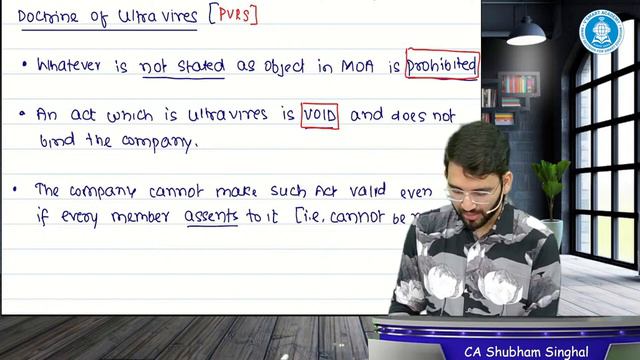 Doctrine of Ultravires [PVRS]
• Whatever is not stated as object in MOA is prohibited
• An act which is ultravires is VOID and does not
bind the company.
• The company cannot make such Act valid even
if every member assents to it [i.e, cannot be
CA Shubham Singhal